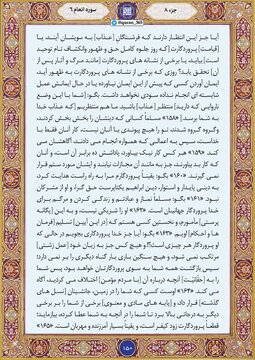 جزء ۸
سوره انعام ۶
آیا جز این انتظار دارند که فرشتگانِ [عذاب] به سویشان آیند، یا
[قیامت] پروردگارت [که روز جلوه کامل حق و ظهور وانکشاف تام توحید
است] بیاید، یا برخی از نشانه های پروردگارت [مانند مرگ و آثار پس از
آن] تحقق یابد؟ روزی که برخی از نشانه های پروردگارت به ظهور آید،
ایمان آوردن کسی که پیش از این ایمان نیاورده یا در حال ایمانش عمل
شایسته ای انجام نداده سودی نخواهد داشت. بگو: [شما با این وضع
ناروایی که دارید] منتظر [عذاب] باشید ما هم منتظریم [که عذاب خدا
به شما برسد] «۱۵۸» مسلماً کسانی که دینشان را بخش بخش کردند،
و گروه گروه شدند، تو را هیچ پیوندی با آنان نیست، کار آنان فقط با
خداست، سپس به اعمالی که همواره انجام می دادند، آگاهشان می
کند. «۱۵۹» هر کس کار نیک بیاورد، پاداشش ده برابر آن است، و آنان
که کار بد بیاورند، جز به مانند آن مجازات نیابند و ایشان مورد ستم قرار
نمی گیرند. «۱۶۰» بگو: یقیناً پروردگارم مرا به راه راست هدایت کرد،
به دینی پایدار و استوار، دین ابراهیم یکتاپرستِ حق گرا، و او از مشرکان
نبود «۱۶۱» بگو: مسلماً نماز و عبادتم و زندگی کردن و مرگم برای
خدا پروردگار جهانیان است. «۱۶۲» او را شریکی نیست، و به این [یگانه
پرستی] مأمورم، و نخستین کسی هستم که [در این آیین] تسلیم [فرمان
ها و احکام] اویم. «۱۶۳» بگو: آیا جز خدا پروردگاری بجویم در حالی که
او پروردگار هر چیزی است؟! و هیچ کس جز به زیان خود [عمل زشتی]
مرتکب نمی شود، و هیچ سنگین باری بار گناه دیگری را بر نمی دارد؛
سپس بازگشت همه شما به سوی پروردگارتان خواهد بود، پس شما
را به [حقّانیّتِ] آنچه درباره آن [با مردم مؤمن] اختلاف می کردید، آگاه
می کند. «۱۶۴» اوست کسی که شما را در زمین، جانشینانِ [نسل های
گذشته] قرار داد، و [پایه های مادی و معنوی] برخی از شما را بر برخی
دیگر به درجاتی بالا برد تا شما را در آنچه به شما عطا کرده، بیازماید؛
قطعاً پروردگارت زود کیفر است، و یقیناً بسیار آمرزنده و مهربان است. «۱۶۵»
۱۵۰